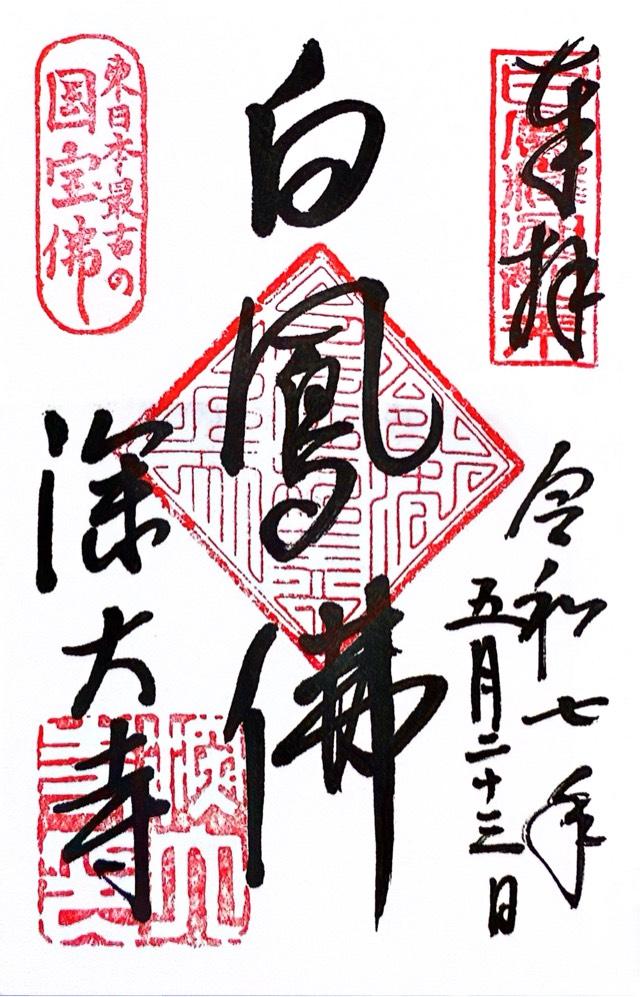 奉拝
令和七年
五月二十三日
白鳳佛
深大寺
東日本最古の
国宝佛